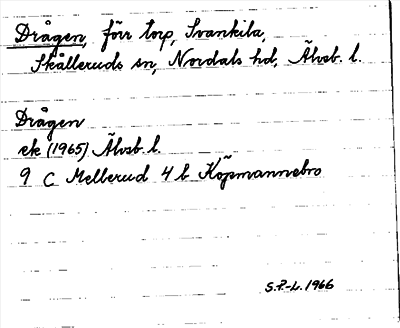 Drågen, förr torp, Svankila,
Skålleruds sn, Nordals hd, Älvsb. l.
Drågen
ek (1965) Älvsb. l.
9 C Mellerud 4 b Köpmannebro
S.P-L. 1966